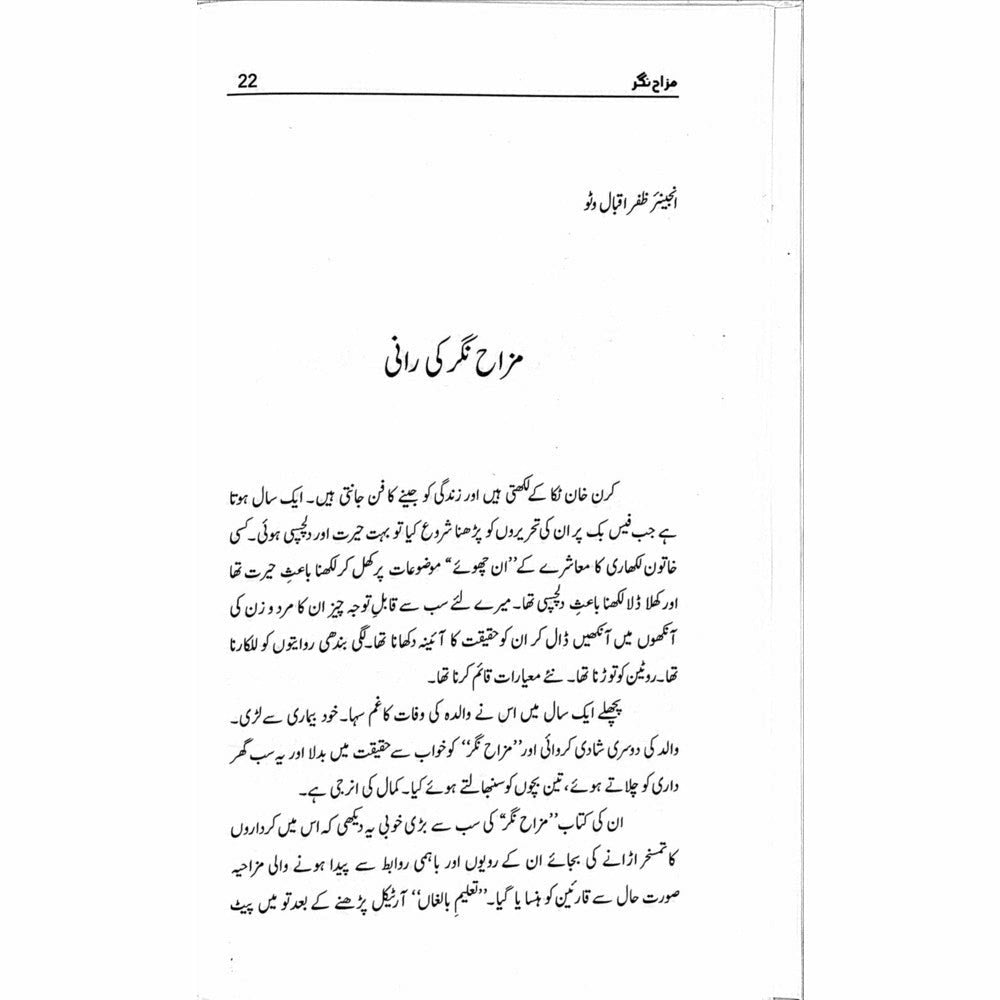 مزاح نگر
22
انجینئر ظفر اقبال وٹو
مزاح نگر کی رانی
کرن خان ٹکا کے لکھتی ہیں اور زندگی کو جینے کا فن جانتی ہیں۔ ایک سال ہوتا
ہے جب فیس بک پر ان کی تحریروں کو پڑھنا شروع کیا تو بہت حیرت اور دلچسپی ہوئی۔ کسی
خاتون لکھاری کا معاشرے کے ’’ان چھوئے‘‘ موضوعات پر کھل کر لکھنا باعثِ حیرت تھا
اور کھلا ڈلا لکھنا باعثِ دلچسپی تھا۔ میرے لئے سب سے قابلِ توجہ چیز ان کا مرد و زن کی
آنکھوں میں آنکھیں ڈال کر ان کو حقیقت کا آئینہ دکھانا تھا۔ لگی بندھی روایتوں کو للکارنا
تھا۔ روٹین کو توڑنا تھا۔ نئے معیارات قائم کرنا تھا۔
پچھلے ایک سال میں اس نے والدہ کی وفات کا غم سہا۔ خود بیماری سے لڑی۔
والد کی دوسری شادی کروائی اور ’’مزاح نگر‘‘ کو خواب سے حقیقت میں بدلا اور یہ سب گھر
داری کو چلاتے ہوئے، تین بچوں کو سنبھالتے ہوئے کیا۔ کمال کی انرجی ہے۔
ان کی کتاب ’’مزاح نگر‘‘ کی سب سے بڑی خوبی یہ دیکھی کہ اس میں کرداروں
کا تمسخر اڑانے کی بجائے ان کے رویوں اور باہمی روابط سے پیدا ہونے والی مزاحیہ
صورت حال سے قارئین کو ہنسایا گیا۔ ’’تعلیمِ بالغاں‘‘ آرٹیکل پڑھنے کے بعد تو میں پیٹ